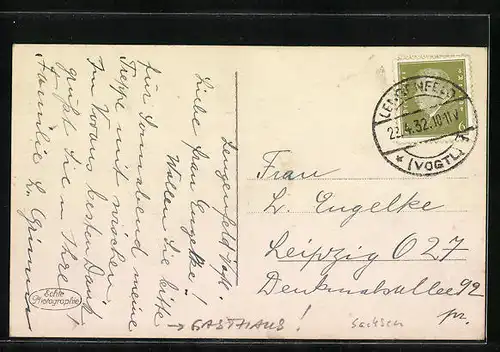 Lengenfeld, Vogtl.
Liebe Frau Engelke!
Wollen Sie bitte
für Sonnabend meine
Treppe mit machen.
Im Voraus besten Dank
grüßt Sie u. Ihre
Familie L.
Echte
Photographie
→ GASTHAUS!
LENGENFELD
23.4.32.10-11V
* (VOGTL)
6
Frau
L. Engelke
Leipzig O 27
Denkmalsallee 92
Sachsen